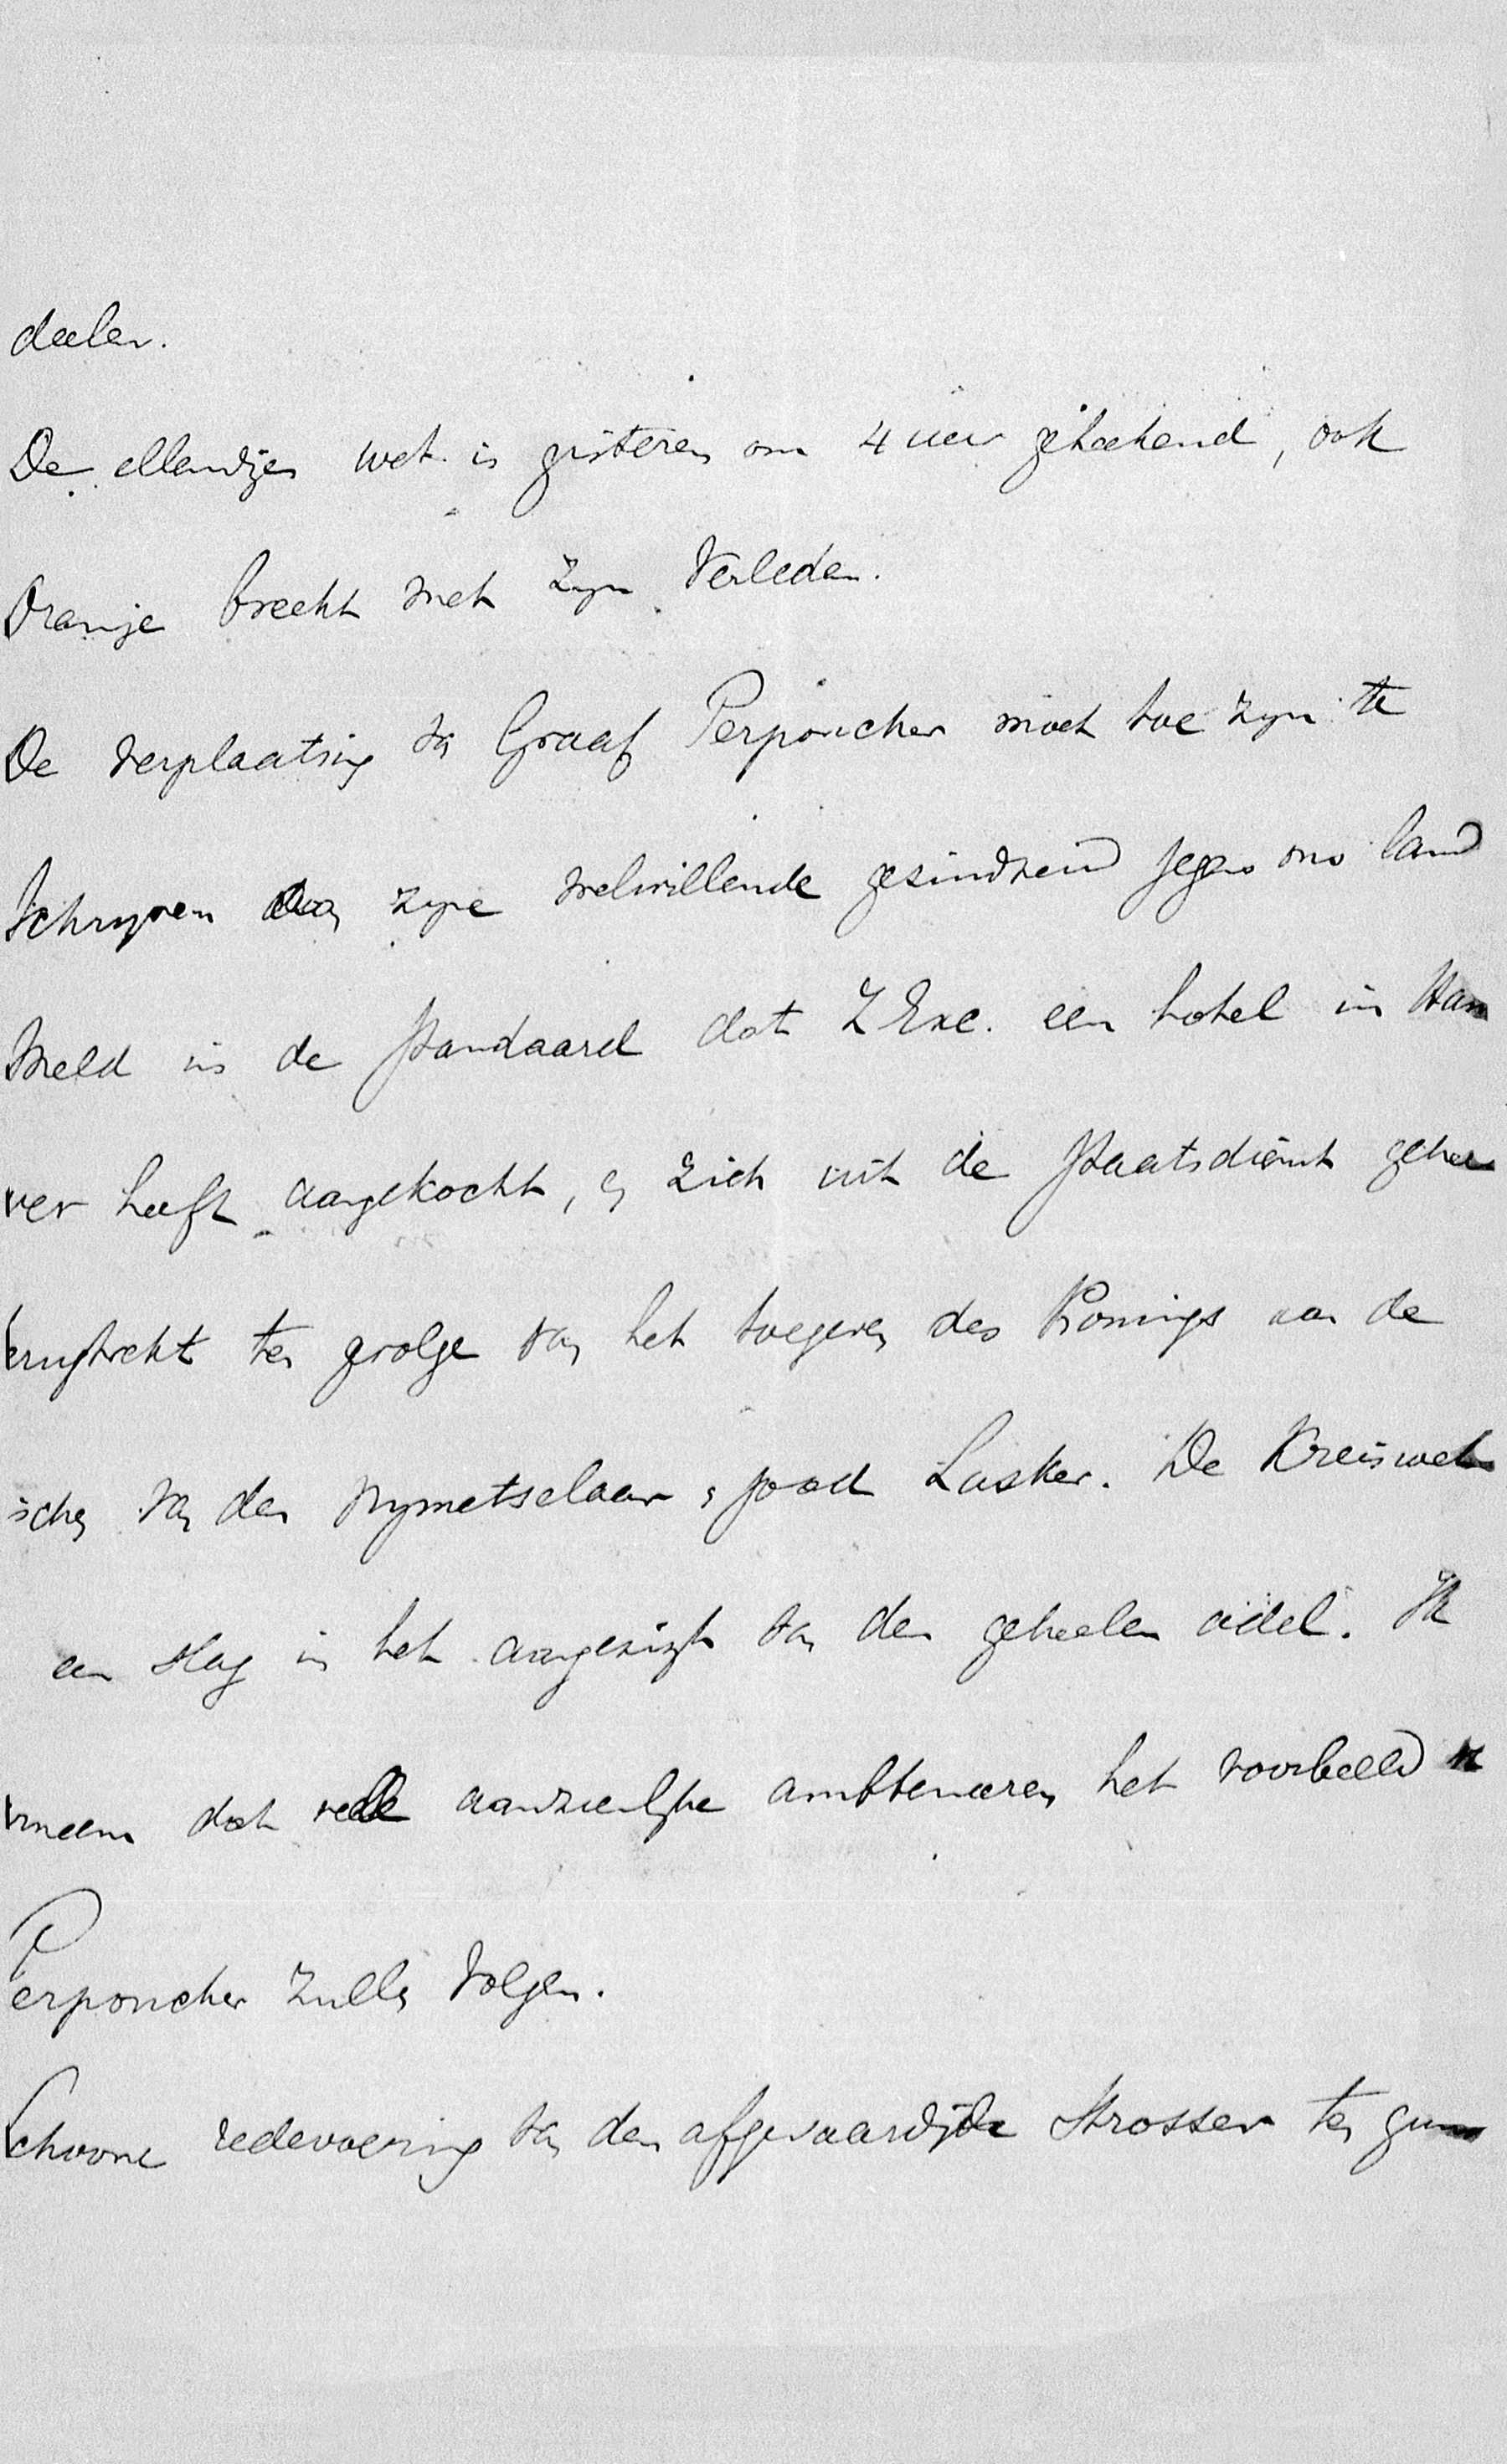 deelen.
De ellendige wet is gisteren om 4 uur geteekend, ook
Oranje breekt met zyn Verleden.
De verplaatsing van Graaf Perponcher moet toe zyn te
schryven aan zyne welwillende gezindheid jegens ons land
Meld in de Standaard dat Z Exc. een hotel in Han
ver heeft aangekocht, en zich uit de Staatsdienst geheel
terugtrekt ten gevolge van het toegeven des Konings aan de
ischen van den vrymetselaar en jood Lasker. De Kreiswet
een slag in het aangezigt van den geheelen adel. Ik
rneem dat vele aanzienlyke ambtenaren het voorbeeld v
Perponcher zullen volgen.
Schoone redevoering van den afgevaardigde Strosser ten guns